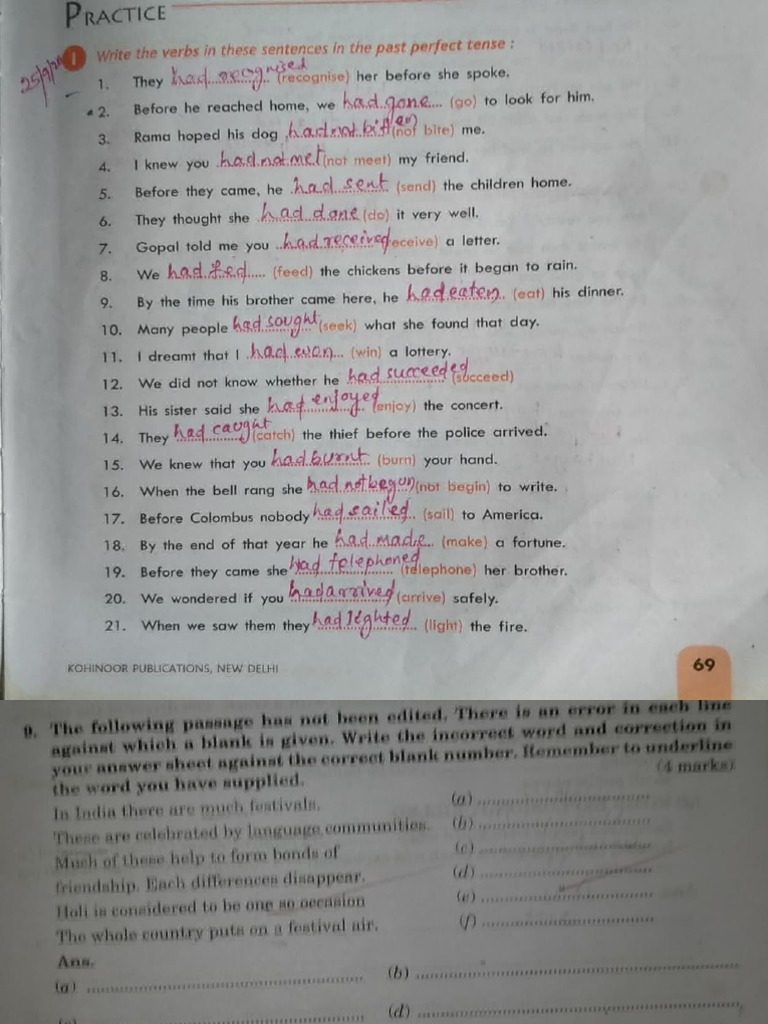 PRACTICE
25/9/20
1 Write the verbs in these sentences in the past perfect tense :
1. They had recognised (recognise) her before she spoke.
2. Before he reached home, we had gone (go) to look for him.
3. Rama hoped his dog had not bitten (not bite) me.
4. I knew you had not met (not meet) my friend.
5. Before they came, he had sent (send) the children home.
6. They thought she had done (do) it very well.
7. Gopal told me you had received (receive) a letter.
8. We had fed (feed) the chickens before it began to rain.
9. By the time his brother came here, he had eaten (eat) his dinner.
10. Many people had sought (seek) what she found that day.
11. I dreamt that I had won (win) a lottery.
12. We did not know whether he had succeeded (succeed)
13. His sister said she had enjoyed (enjoy) the concert.
14. They had caught (catch) the thief before the police arrived.
15. We knew that you had burnt (burn) your hand.
16. When the bell rang she had not begun (not begin) to write.
17. Before Colombus nobody had sailed (sail) to America.
18. By the end of that year he had made (make) a fortune.
19. Before they came she had telephoned (telephone) her brother.
20. We wondered if you had arrived (arrive) safely.
21. When we saw them they had lighted (light) the fire.
KOHINOOR PUBLICATIONS, NEW DELHI 69
9. The following passage has not been edited. There is an error in each line
against which a blank is given. Write the incorrect word and correction in
your answer sheet against the correct blank number. Remember to underline
the word you have supplied. (4 marks)
In India there are much festivals. (a)
These are celebrated by language communities. (b)
Much of these help to form bonds of (c)
friendship. Each differences disappear. (d)
Holi is considered to be one so occasion (e)
The whole country puts on a festival air. (f)
Ans.
(a) (b)
(c) (d)